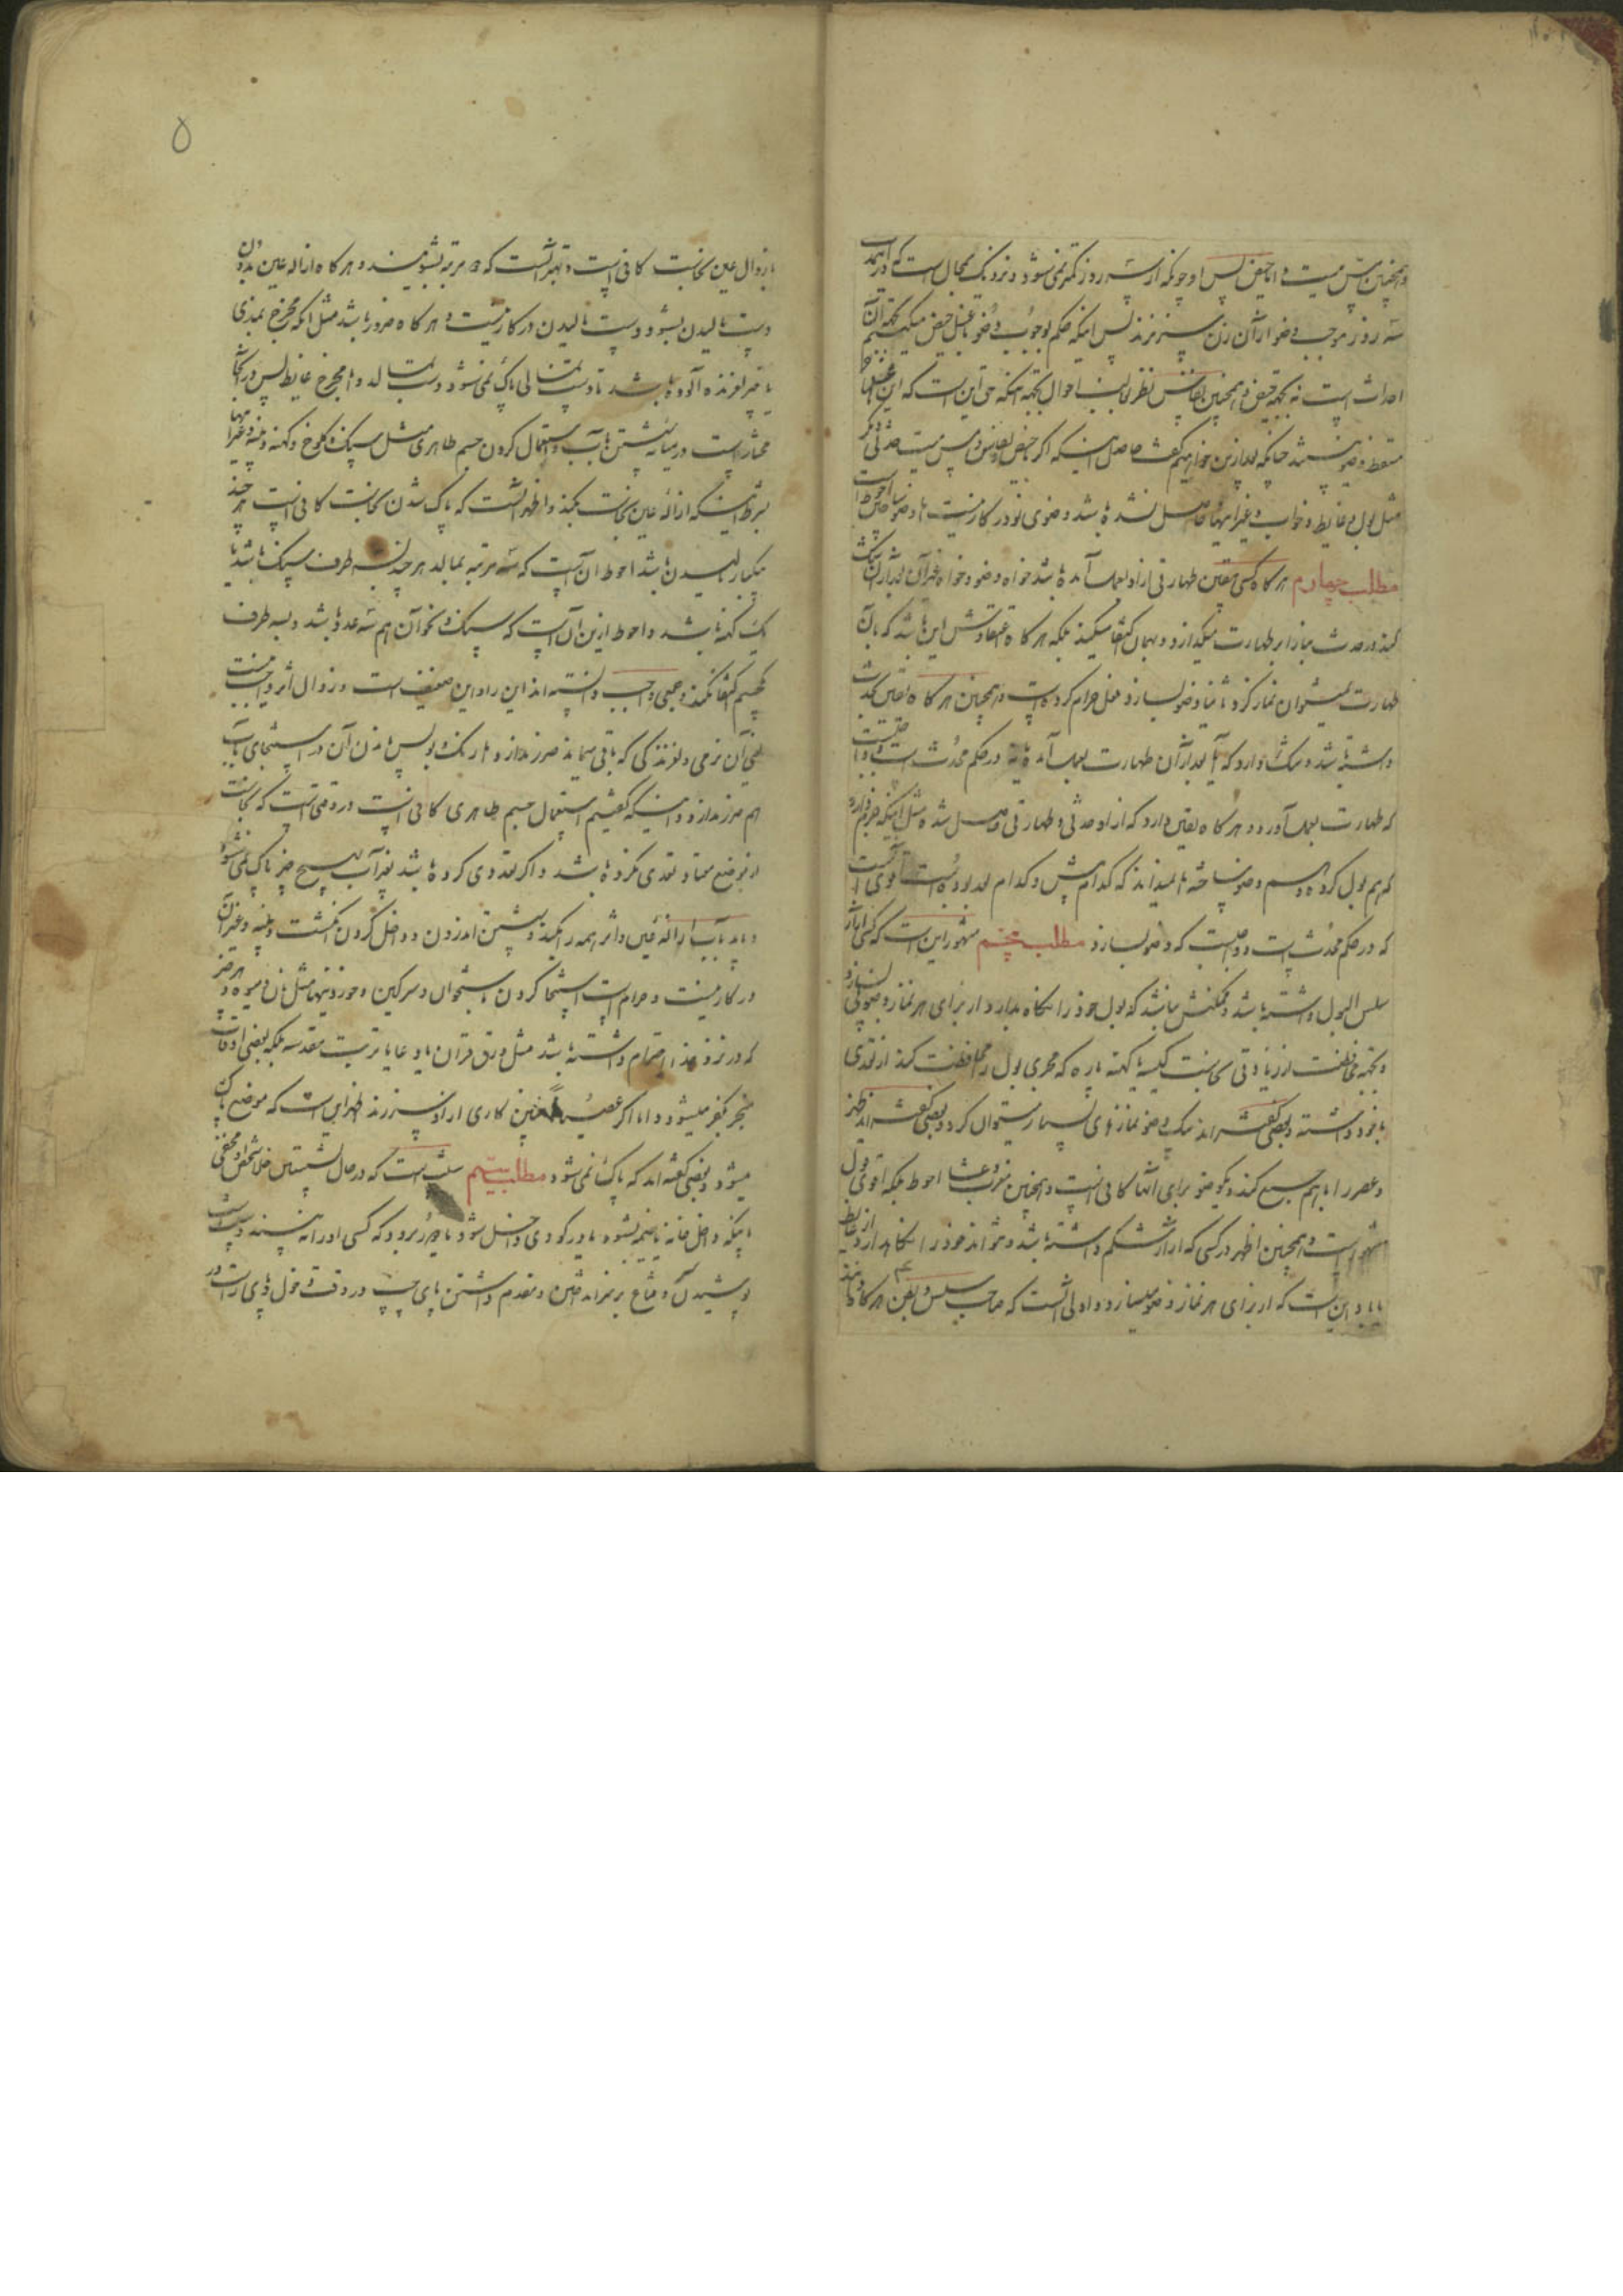 و همچنین مسّ میت و اما حیض پس او چونکه از سه روز کمتر نمی شود و نزدیک بمحال است که در این مدت
سه روز موجب وضو از آن زن سر نزند پس اینکه حکم بوجوب وضو با غسل حیض میکنیم بجهة آن
احداث است نه بجهة حیض و همچنین نفاس نظر بغالب احوال بلکه حق این است که این غسلها
مسقط وضو هستند چنانکه بعد ازین خواهیم گفت حاصل اینکه اگر حیض و نفاس و مس میت حدثی دیگر
مثل بول و غایط و خواب و غیر اینها حاصل نشده باشد وضوی نو در کار نیست اما وضو ساختن احوط است
مطلب چهارم هر گاه کسی یقین طهارتی از او بعمل آمده باشد خواه وضو و خواه غیر آن بعد از آن شک
کند در حدث بنا را بر طهارت میگذارد و بهمان اکتفا میکند بلکه هر گاه اعتقادش این باشد که بآن
طهارت نمیتوان نماز کرد و ثانیا وضو بسازد فعل حرام کرده است و همچنین هر گاه یقین بحدث
داشته باشد و شک دارد که آیا بعد از آن طهارت بعمل آمده یا نه در حکم محدث است و واجبست
که طهارت بعمل آورد و هر گاه یقین دارد که از او حدثی و طهارتی حاصل شده مثل اینکه جزم دارد
که هم بول کرده و هم وضو ساخته اما نمیداند که کدام پیش و کدام بعد بوده است اقوی آنست
که در حکم محدث است و واجبست که وضو بسازد مطلب پنجم مشهور این است که کسی که آزار
سلس البول داشته باشد و ممکنش نباشد که بول خود را نگاه بدارد از برای هر نماز وضوئی بسازد
و بجهة محافظت از زیادتی نجاست کیسه یا کهنه پاره که مجری بول را محافظت کند از تعدی
با خود داشته و بعضی گفته اند بیک وضو نمازهای بسیار میتوان کرد و بعضی گفته اند ظهر
و عصر را با هم جمع کند و یک وضو برای آنها کافی است و همچنین مغرب و عشا احوط بلکه اقوی قول
مشهور است و همچنین اظهر در کسی که آزار شکم داشته باشد و نتواند خود را نگاه دارد از غایط
یا باد این است که از برای هر نماز وضو میسازد و اولی آنست که صاحب سلس و بطن هر گاه
بازوال عین نجاست کافی است و بهتر آنست که دو مرتبه بشویند و هر گاه ازاله عین بدون
دست مالیدن بشود دست مالیدن در کار نیست و هر گاه ضرور باشد مثل آنکه مخرج بمذی
یا چیز لغزنده آلوده باشد تا دست نمالی پاک نمی شود دست بمالد و اما مخرج غایط پس در آنجا
مختار است در میانه شستن بآب و استعمال کردن جسم طاهری مثل سنگ و کلوخ و کهنه و پنبه و غیر اینها
بشرط اینکه ازالهٔ عین نجاست بکند و اظهر آنست که پاک شدن نجاست کافی است هر چند
بیکبار مالیدن باشد احوط آن است که سه مرتبه بمالد هر چند بسه طرف سنگ باشد یا
یک کهنه باشد و احوط ازین آن است که سنگ و نحو آن هم سه عدد باشد و بسه طرف
یک جسم اکتفا نکند و جمعی واجب دانسته اند این را و این ضعیف است و زوال اثر واجب نیست
یعنی آن نرمی و لغزندگی که باقی میماند ضرر ندارد و اما رنگ و بو پس ماندن آن در استنجای بآب
هم ضرر ندارد و اینکه گفتیم استعمال جسم طاهری کافی است در وقتی است که نجاست
از موضع معتاد تعدی نکرده باشد و اگر تعدی کرده باشد بغیر آب بهیچ چیز پاک نمی شود
و باید بآب ازالهٔ عین و اثر همه را بکند و شستن اندرون و داخل کردن انگشت و پنبه و غیر آن
در کار نیست و حرام است استنجا کردن باستخوان و سرگین و خوردنیها مثل نان و میوه و هر چیز
که در نزد خدا احترام داشته باشد مثل ورق قرآن یا دعا یا تربت مقدسه بلکه بعضی اوقات
منجر بکفر میشود و اما اگر عصیانا چنین کاری از او سر زند اظهر این است که موضع پاک
میشود و بعضی گفته اند که پاک نمی شود مطلب بیستم سنت است که در حال
اینکه داخل خانه یا خیمه بشود یا در گودی داخل شود یا دور برود که کسی او را نه بیند و سنت است
پوشیدن سر و مقدم داشتن پای چپ در وقت دخول و پای راست در